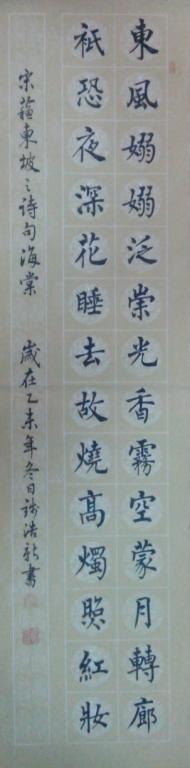 東風嫋嫋泛崇光香霧空蒙月轉廊
祇恐夜深花睡去故燒高燭照紅妝
宋蘇東坡之詩句海棠 歲在乙未年冬日浩書